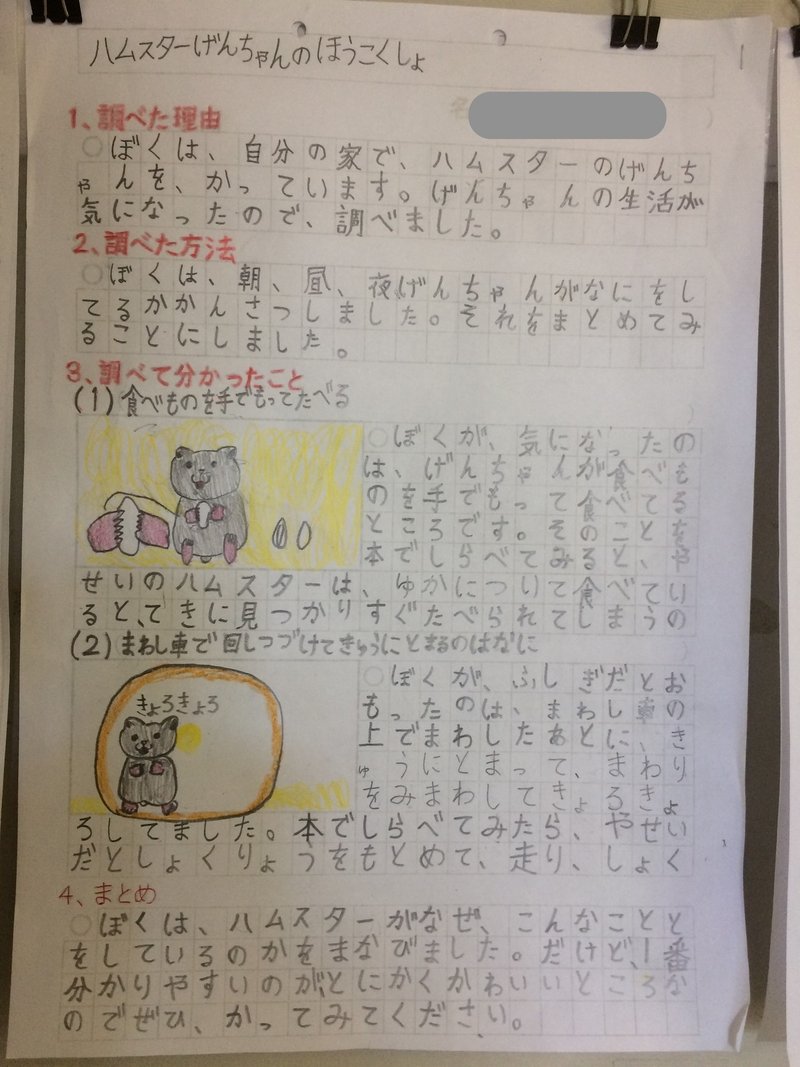 ハムスターげんちゃんのほうこくしょ
1
名
1、調べた理由
○ぼくは、自分の家で、ハムスターのげんち
ゃんを、かっています。げんちゃんの生活が
気になったので、調べました。
2、調べた方法
○ぼくは、朝、昼、夜げんちゃんがなにをし
てるかかんさつしました。それをまとめてみ
ることにしました。
3、調べて分かったこと
(1)食べものを手でもってたべる
○ぼくが、気になったの
は、げんちゃんが食べも
のを手でもって食べてる
ところです。そのことを
本でしらべてみると、や
せいのハムスターは、ゆかについて食べてい
ると、てきに見つかりすぐたべられてしまうの
(2)まわし車で回しつづけてきゅうにとまるのはなに
○ぼくが、ふしぎだとお
もったのは、まわし車の
上でまわしたあとに、き
ゅうにとまって、まわり
をみまわしてきょろきょ
ろしてました。本でしらべてみたら、やせい
だとしょくりょうをもとめて、走り、しょく
きょろきょろ
4、まとめ
○ぼくは、ハムスターがなぜ、こんなことと
をしているのかをまなびました。だけど、1番
分かりやすいのが、とにかくかわいいところな
のでぜひ、かってみてください。